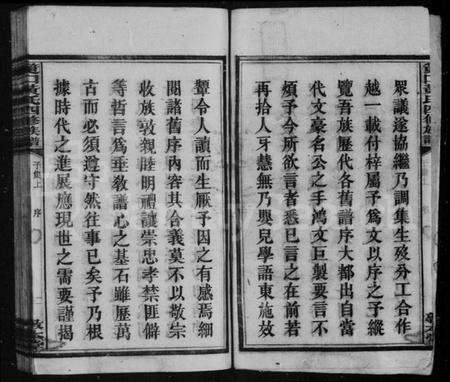 眾議遂協繼乃調集生歿分工合作
越一載付梓屬予為文以序之予縱
覽吾族歷代各舊譜序大都出自當
代文豪名公之手鴻文巨製要言不
煩予今所欲言者悉已言之在前若
再拾人牙慧無乃嬰兒學語東施效
顰令人讀而生厭予因之有感焉細
閱諸舊序內容其合義莫不以敬宗
收族敦親睦明禮讓崇忠孝禁匪僻
等哲言為垂教議心之基石雖歷萬
古而必須遵守然往事已矣予乃根
據時代之進展應現世之需要謹揭
黃氏四修族譜
子集上
序